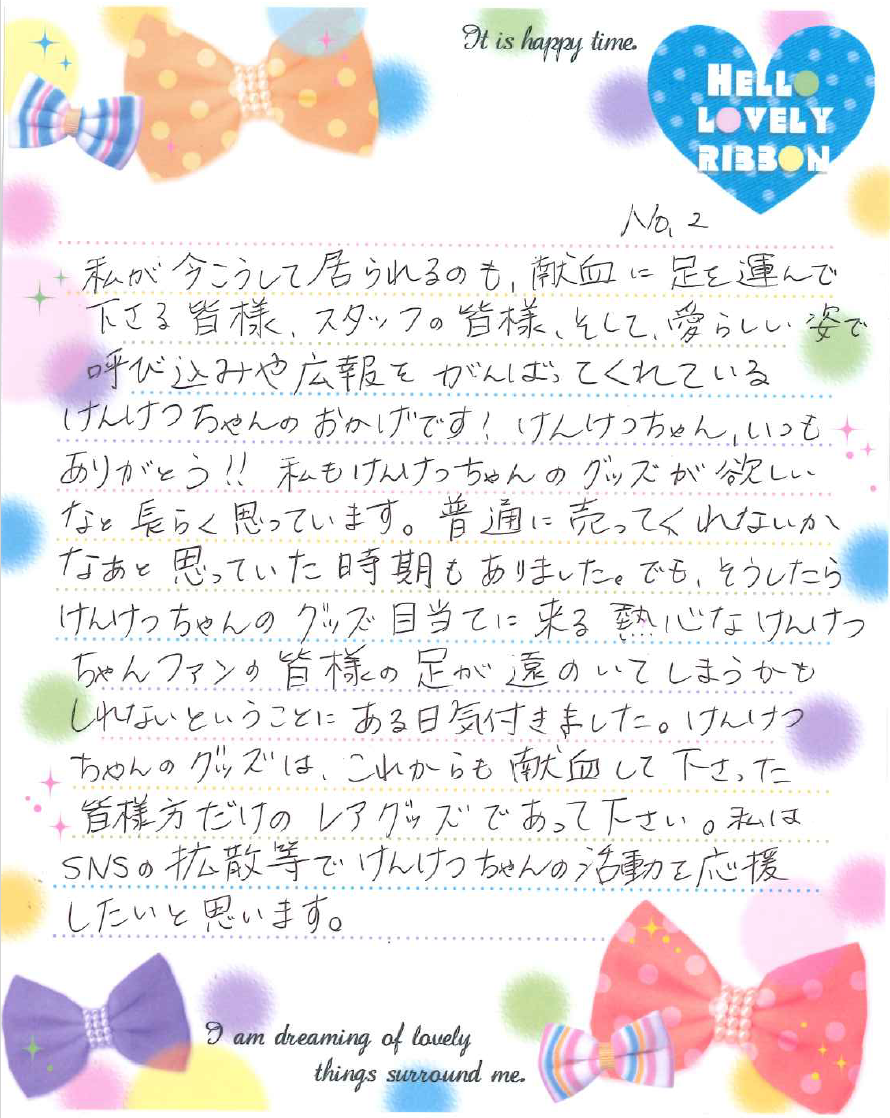 It is happy time.
HELLO
LOVELY
RIBBON
No, 2
私が今こうして居られるのも、献血に足を運んで
下さる皆様、スタッフの皆様、そして、愛らしい姿で
呼び込みや広報をがんばってくれている
けんけつちゃんのおかげです! けんけつちゃん、いつも
ありがとう!! 私もけんけつちゃんのグッズが欲しい
なと長らく思っています。普通に売ってくれないか
なぁと思っていた時期もありました。でも、そうしたら
けんけつちゃんのグッズ目当てに来る熱心なけんけつ
ちゃんファンの皆様の足が遠のいてしまうかも
しれないということにある日気付きました。けんけつ
ちゃんのグッズは、これからも献血して下さった
皆様方だけのレアグッズであって下さい。私は
SNSの拡散等でけんけつちゃんの活動を応援
したいと思います。
I am dreaming of lovely
things surround me.